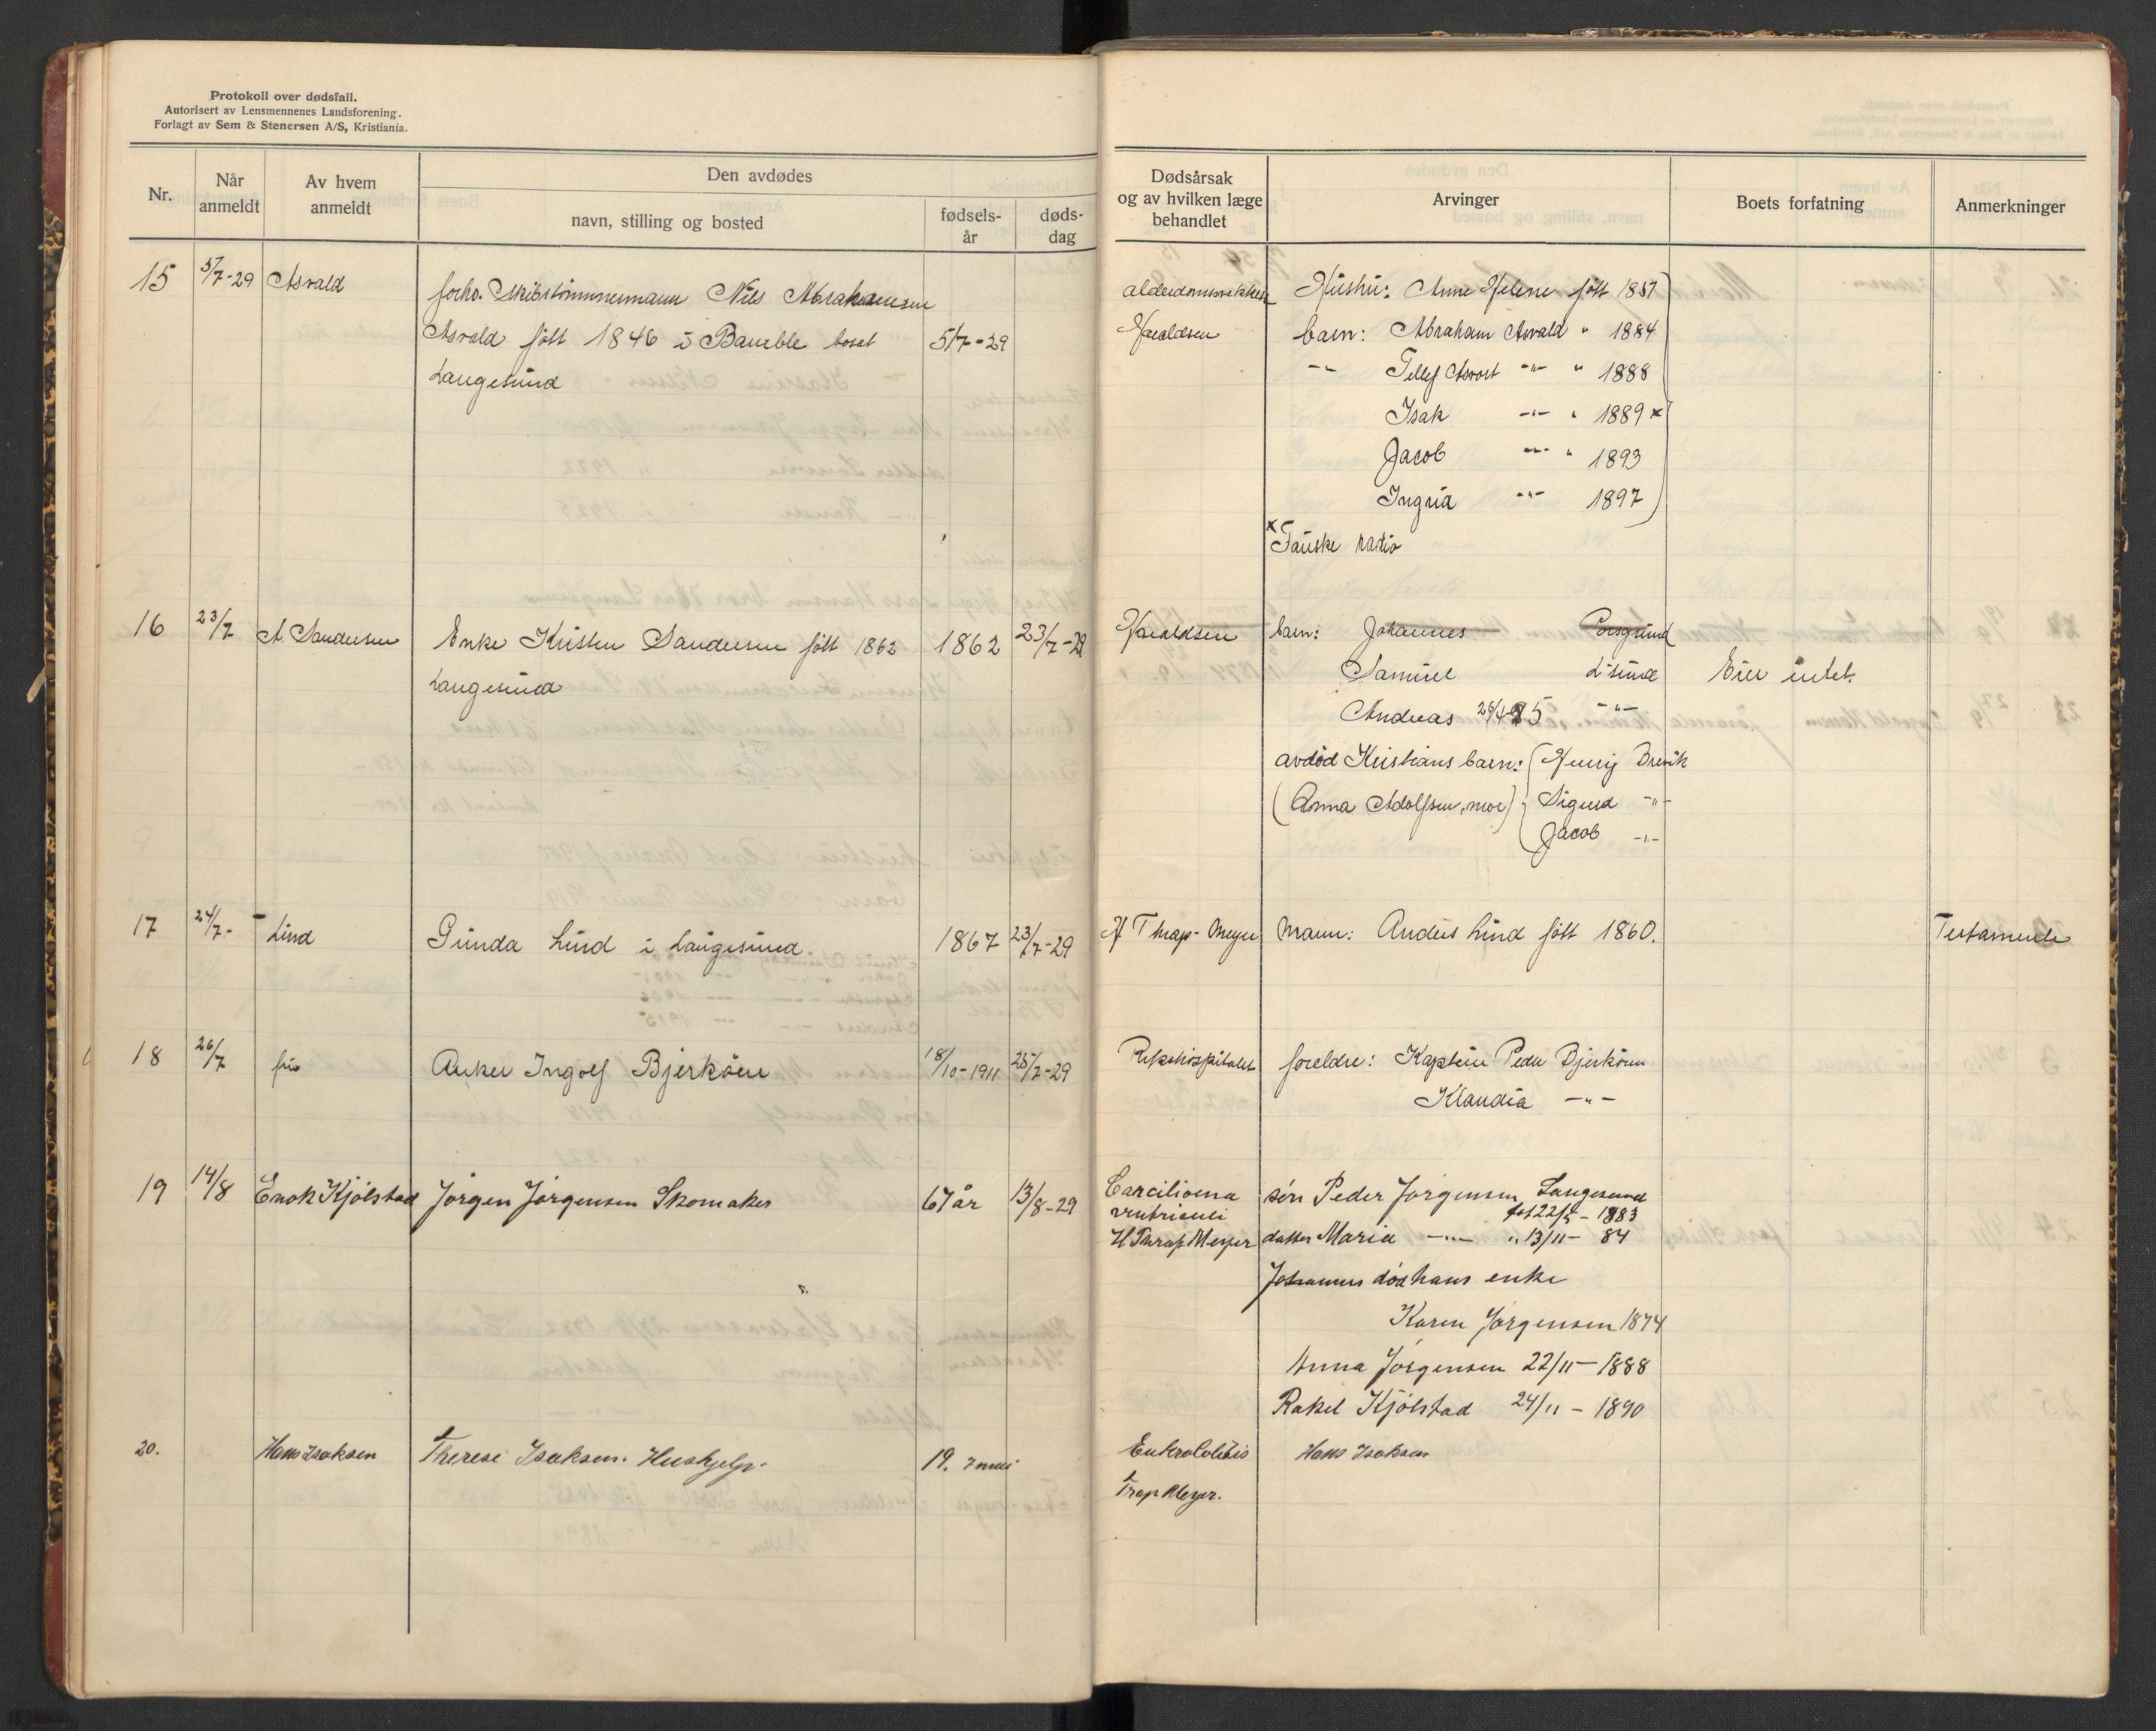 Protokoll over dødsfall.
Autorisert av Lensmennenes Landsforening.
Forlagt av Sem & Stenersen A/S, Kristiania.
Nr.
Når anmeldt
Av hvem anmeldt
Den avdødes
navn, stilling og bosted
fødsels-år
døds-dag
Dødsårsak og av hvilken læge behandlet
Arvinger
Boets forfatning
Anmerkninger
15 5/7-29 Asvald forhv. Skibstømmermann Nils Abrahamsen
Asvald født 1846 i Bamble bosat 5/7-29
Langesund
alderdomssvekkelse Hustru: Anne Helene født 1857
Haraldsen barn: Abraham Asvald " 1884
-"- Tellef Asvald -"- " 1888
Isak -"- " 1889 x
Jacob -"- " 1893
Ingrid -"- 1897
x Fauske radio
16 23/7 A. Sandersen Enke Kristen Sandersen født 1862 1862 23/7-29
Langesund
Haraldsen barn: Johannes Porsgrund
Samuel L'sund Eier intet.
Andreas -"-
avdød Kristians barn: Henrij Brevik
(Anna Adolfsen, mor) Sigurd -"-
Jacob -"-
17 24/7- Lind Gunda Lind i Langesund 1867 23/7-29
H Thrap-Meyer Mann: Anders Lind født 1860. Testamente
18 26/7 Anker Ingolf Bjerkøen 18/10-1911 25/7-29
Rikshospitalet foreldre: Kaptein Peder Bjerkøen
Klaudia -"-
19 14/8 Enok Kjølstad Jørgen Jørgensen Skomaker 67 år 13/8-29
Carcilioma søn Peder Jørgensen Langesund
ventriculi født 22/5-1883
H Thrap Meyer datter Maria -"- " 13/11- 84
Johannes død hans enke
Karen Jørgensen 1874
Anna Jørgensen 22/11-1888
Rakel Kjølstad 24/11-1890
20. Hans Isaksen Therese Isaksen. Hushjelp. 19.
Hans Isaksen
Trap Meyer.